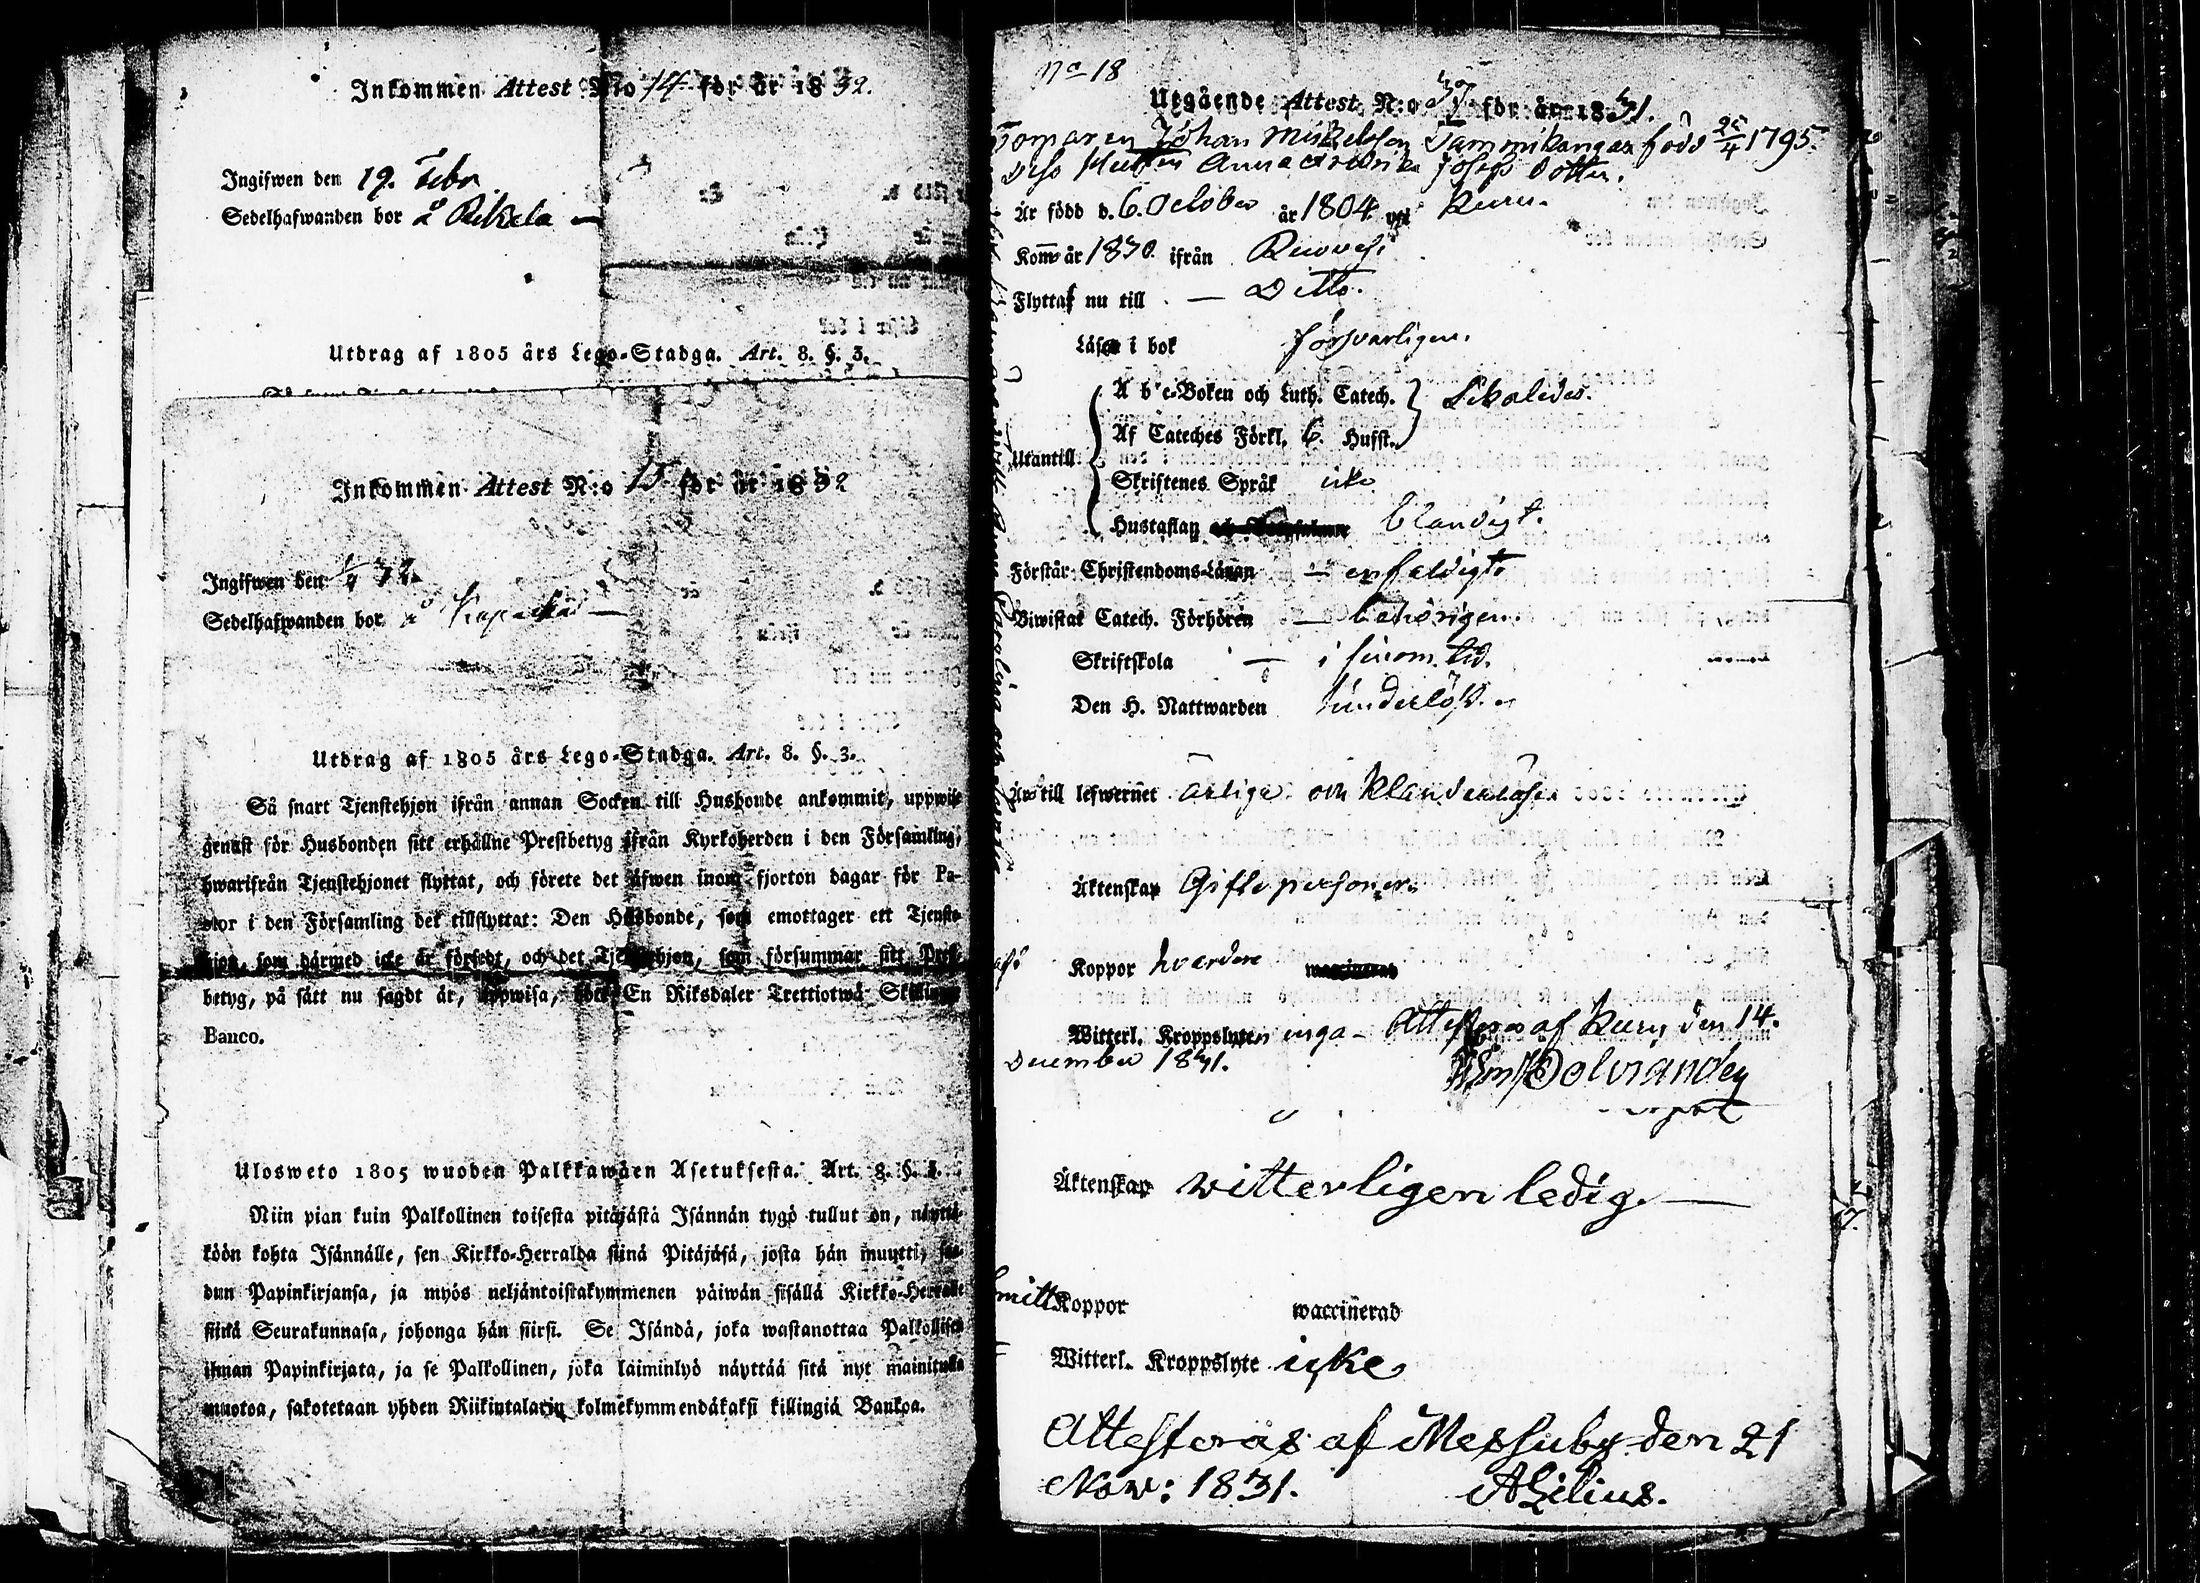 Inkommen Attest N:o 14 för år 1832.
Ingifwen den 19. Febr
Sedelhafwanden bor å
Utdrag af 1805 års Lego-Stadga. Art. 8. §. 3.
Inkommen Attest N:o 15 för år 1832
Ingifwen den 32.
Sedelhafwanden bor å
Utdrag af 1805 års Lego-Stadga. Art. 8. §. 3.
Så snart Tjenstehjon ifrån annan Socken till Husbonde ankommit, uppwise
genast för Husbonden sitt erhållne Prestbetyg ifrån Kyrkoherden i den Församling,
hwarifrån Tjenstehjonet flyttat, och förete det äfwen inom fjorton dagar för Pa-
stor i den Församling det tillflyttat: Den Husbonde, som emottager ett Tjenste-
hjon, som härmed icke är försedt, och det Tjenstehjon, som försummar sitt Prest-
betyg, på sätt nu sagdt är, uppwisa, böte En Riksdaler Trettiotwå Skillingar
Banco.
Ulosweto 1805 wuoden Palkkawäen Asetuksesta. Art. 8. §. 3.
Niin pian kuin Palkollinen toisesta pitäjästä Isännän tygö tullut on, näyttä-
köön kohta Isännälle, sen Kirkko-Herralda siinä Pitäjäsä, josta hän muutti, saa-
dun Papinkirjansa, ja myös neljäntoistakymmenen päiwän sisällä Kirkko-Herralle
siinä Seurakunnasa, johonga hän siirsi. Se Isändä, joka wastanottaa Palkollisen
ilman Papinkirjata, ja se Palkollinen, joka laiminlyö näyttää sitä nyt mainitulla
muotoa, sakotetaan yhden Riikintalarin kolmekymmendäkaksi killingiä Bankoa.
No 18
Utgående Attest N:o 37 för år 1831.
Johan Mickelsson Tammikangas född 25/4 1795.
Dess Hustru Anna Josefs Dotter.
Är född d. 6. October år 1804 uti Kuru.
Kom år 1830. ifrån Ruovesi
Flyttas nu till — Ditto.
Läser i bok försvarligen.
Utantill
A b c-Boken och Luth. Catech. Likaledes.
Af Cateches Förkl. 6. Hufst.
Skriftenes Språk icke
Hustaflan Clandigt.
Förstår Christendoms-Läran — enfaldigt
Biwistat Catech. Förhören — behörigen.
Skriftskola — i sinom tid.
Den H. Nattwarden
Är till lefwernet ärliga och klanderlösa
Äktenskap Gifte personer.
Koppor hvardera
Witterl. Kroppslyten inga — Attesteras af Kuru den 14.
December 1831.
Äktenskap witterligen ledig. —
Koppor waccinerad
Witterl. Kroppslyte icke
Attesteras af Messuby den 21
Now: 1831. A Gilius.